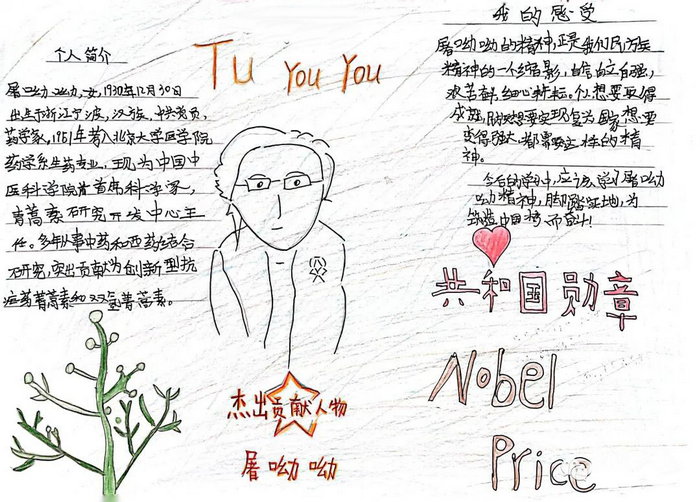 Tu You You
个人简介
屠呦呦,女,1930年12月30日
出生于浙江宁波,汉族,中共党员,
药学家,1951年考入北京大学医学院
药学系生药专业,现为中国中
医科学院首席科学家,
青蒿素研究开发中心主
任。多年从事中药和西药结合
研究,突出贡献为创新型抗
疟药青蒿素和双氢青蒿素。
我的感受
屠呦呦的精神,正是我们民族
精神的一个缩影,自信自强,
艰苦奋斗,细心耕耘。个人想要取得
成就,民族想要实现复兴,国家想要
变得强大,都需要这样的精
神。
今后的学习中,应该学习屠呦
呦精神,脚踏实地,为
筑造中国梦而奋斗!
共和国勋章
Nobel
Price
杰出贡献人物
屠呦呦